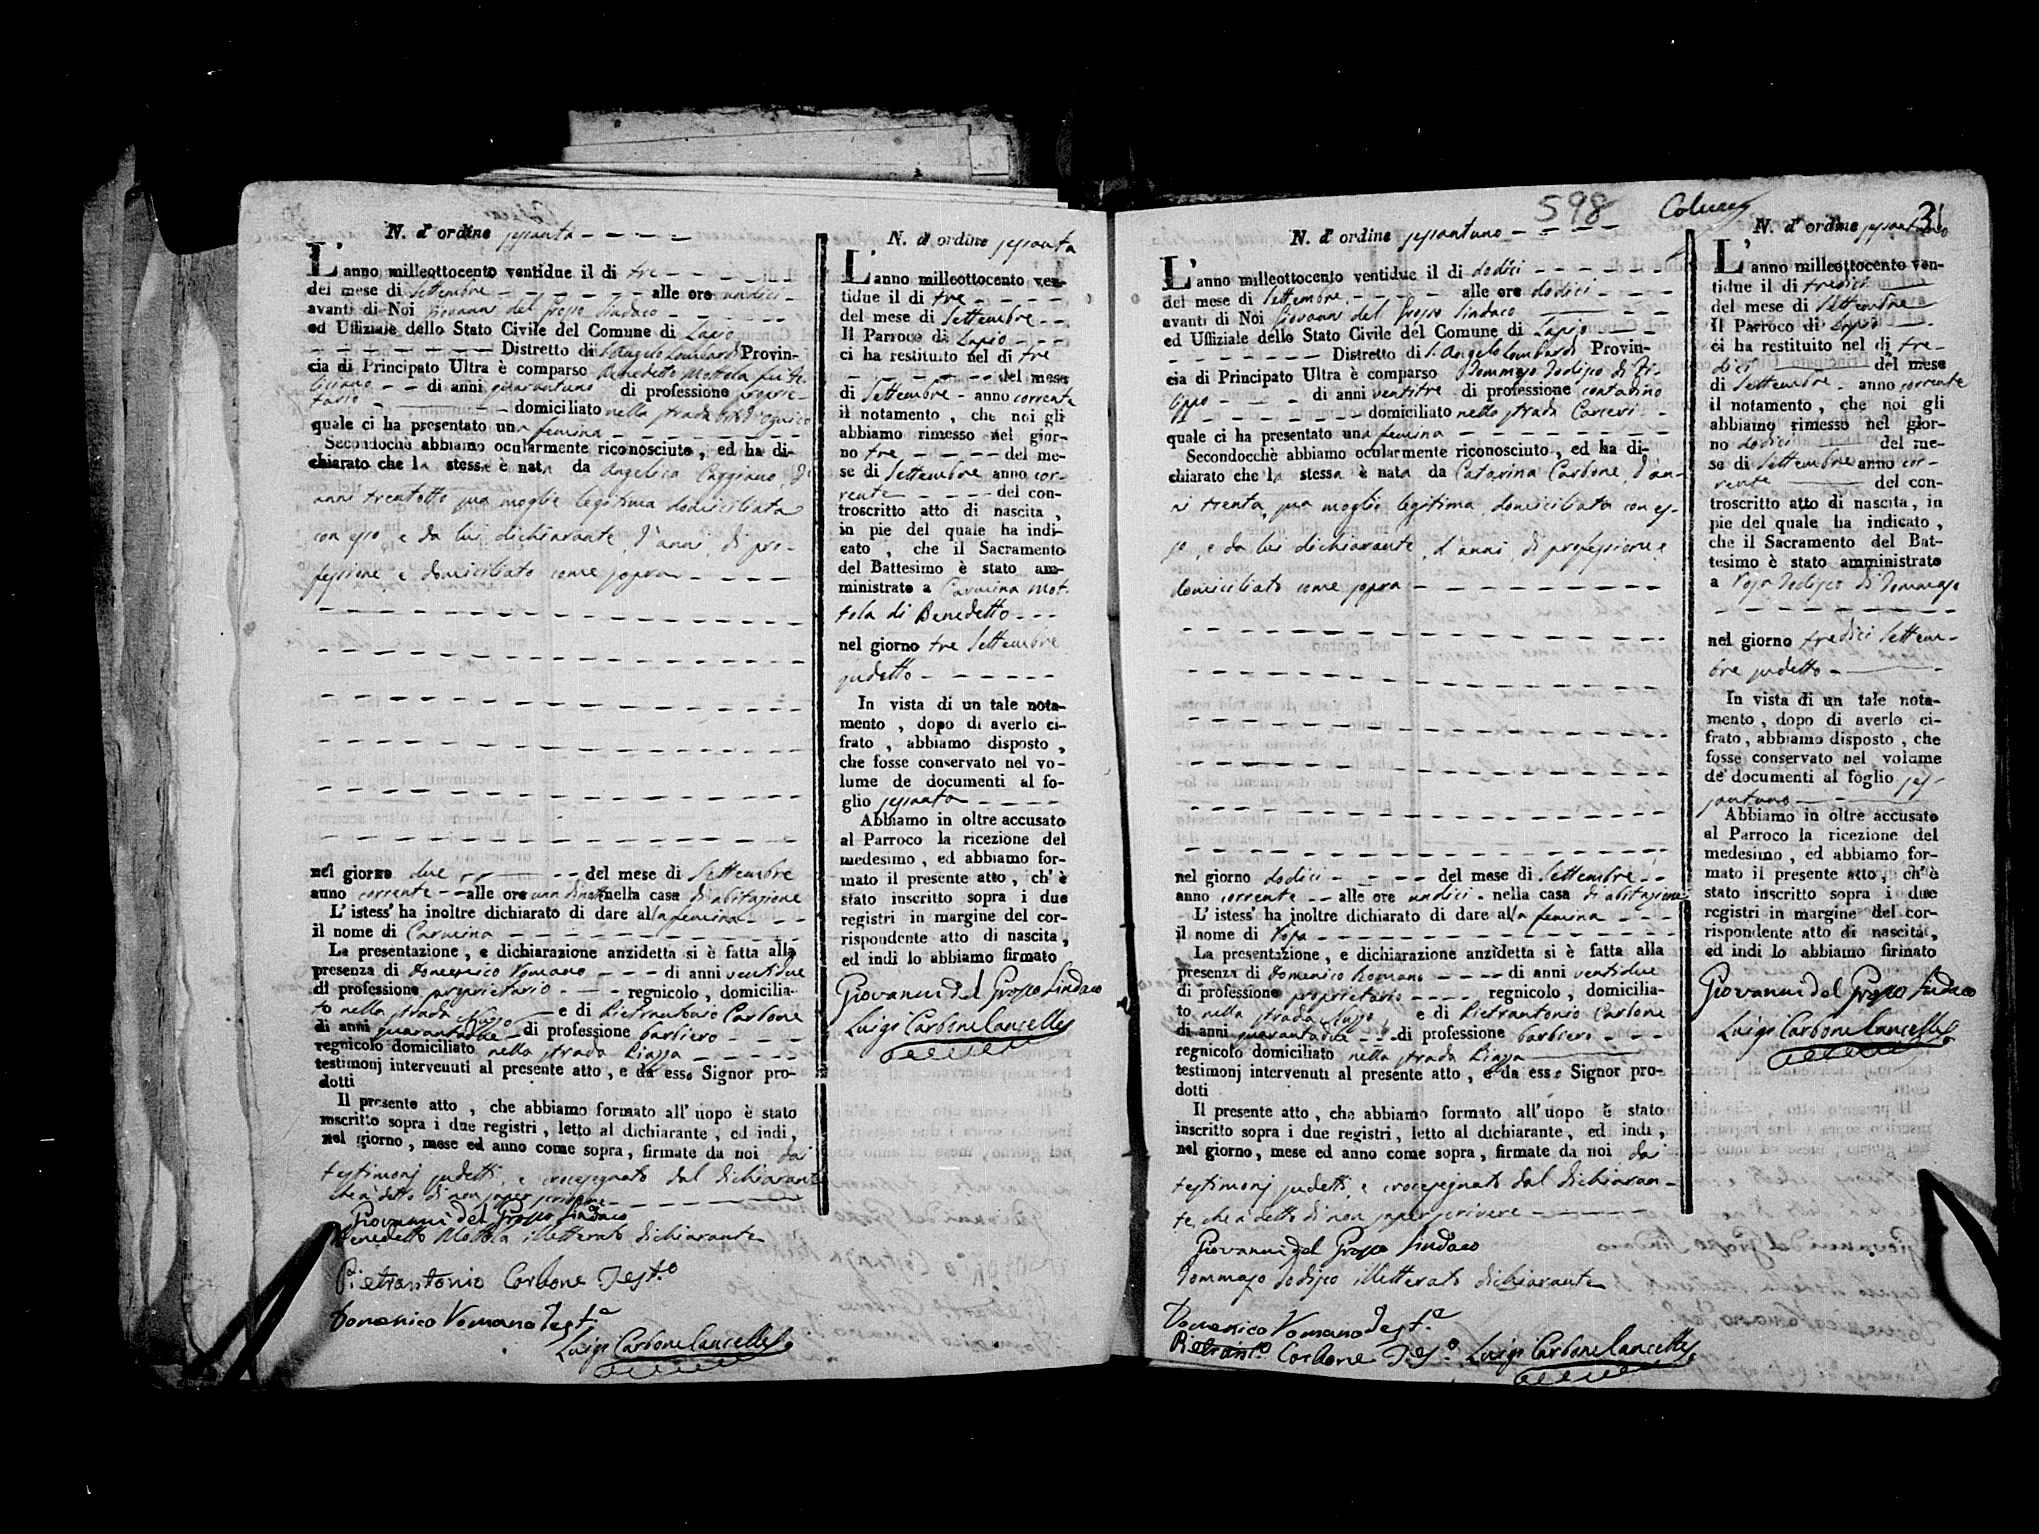 N. d'ordine sessanta
L'anno milleottocento ventidue il di tre
del mese di Settembre alle ore undici
avanti di Noi Giovanni del Grosso Sindaco
ed Uffiziale dello Stato Civile del Comune di Lapio
Distretto di S. Angelo Lombardi Provin-
cia di Principato Ultra è comparso Benedetto Mottola fu Fe-
liciano di anni quarantuno di professione proprie-
tario domiciliato nella strada
quale ci ha presentato una femina
Secondochè abbiamo ocularmente riconosciuto, ed ha di-
chiarato che la stessa è nata da Angelica Caggiano, di
anni trentotto sua moglie legitima domiciliata
con esso e da lui dichiarante, d'anni di pro-
fessione e domiciliato come sopra
nel giorno due del mese di Settembre
anno corrente alle ore nella casa di abitazione
L'istess' ha inoltre dichiarato di dare alla femina
il nome di Carmina
La presentazione, e dichiarazione anzidetta si è fatta alla
presenza di Domenico Romano di anni ventidue
di professione proprietario regnicolo, domicilia-
to nella strada Nuzzo e di Pietrantonio Carbone
di anni quarantadue di professione barbiero
regnicolo domiciliato nella strada Piazza
testimonj intervenuti al presente atto, e da esso Signor pro-
dotti
Il presente atto, che abbiamo formato all'uopo è stato
inscritto sopra i due registri, letto al dichiarante, ed indi,
nel giorno, mese ed anno come sopra, firmate da noi dai
testimonj sudetti, e crocesegnato dal dichiarante
che à detto di non saper scrivere
Giovanni del Grosso Sindaco
Benedetto Mottola illetterato dichiarante
Pietrantonio Carbone Test.o
Domenico Romano Test.e
Luigi Carbone Cancelle
N. d'ordine sessanta
L'anno milleottocento ven-
tidue il di tre
del mese di Settembre
Il Parroco di Lapio
ci ha restituito nel di tre
del mese
di Settembre anno corrente
il notamento, che noi gli
abbiamo rimesso nel gior-
no tre del me-
se di Settembre anno cor-
rente del con-
troscritto atto di nascita,
in pie del quale ha indi-
cato, che il Sacramento
del Battesimo è stato am-
ministrato a Carmina Mot-
tola di Benedetto
nel giorno tre Settembre
sudetto
In vista di un tale nota-
mento, dopo di averlo ci-
frato, abbiamo disposto,
che fosse conservato nel vo-
lume de documenti al fo-
glio sessanta
Abbiamo in oltre accusato
al Parroco la ricezione del
medesimo, ed abbiamo for-
mato il presente atto, ch'è
stato inscritto sopra i due
registri in margine del cor-
rispondente atto di nascita,
ed indi lo abbiamo firmato
Giovanni del Grosso Sindaco
Luigi Carbone Cancelle
598
31
N. d'ordine sessantuno
L'anno milleottocento ventidue il di dodici
del mese di Settembre alle ore dodici
avanti di Noi Giovanni del Grosso Sindaco
ed Uffiziale dello Stato Civile del Comune di Lapio
Distretto di S. Angelo Lombardi Provin-
cia di Principato Ultra è comparso Tommaso Iodisco di Fi-
lippo di anni ventitre di professione contadino
domiciliato nella strada Carceri
quale ci ha presentato una femina
Secondochè abbiamo ocularmente riconosciuto, ed ha di-
chiarato che la stessa è nata da Catarina Carbone, d'an-
ni trenta, sua moglie legitima, domiciliata con es-
so, e da lui dichiarante, d'anni, di professione e
domiciliato come sopra
nel giorno dodici del mese di Settembre
anno corrente alle ore undici nella casa di abitazione
L'istess' ha inoltre dichiarato di dare alla femina
il nome di Rosa
La presentazione, e dichiarazione anzidetta si è fatta alla
presenza di Domenico Romano di anni ventidue
di professione proprietario regnicolo, domicilia-
to nella strada Nuzzo e di Pietrantonio Carbone
di anni quarantadue di professione barbiero
regnicolo domiciliato nella strada Piazza
testimonj intervenuti al presente atto, e da esso Signor pro-
dotti
Il presente atto, che abbiamo formato all'uopo è stato
inscritto sopra i due registri, letto al dichiarante, ed indi,
nel giorno, mese ed anno come sopra, firmate da noi dai
testimonj sudetti, e crocesegnato dal dichiaran-
te, che à detto di non saper scrivere
Giovanni del Grosso Sindaco
Tommaso Iodisco illetterato dichiarante
Domenico Romano Test.e
Pietrant.o Carbone Tes.o Luigi Carbone Cancelle
N. d'ordine sessantuno
L'anno milleottocento ven-
tidue il di tredici
del mese di Settembre
Il Parroco di Lapio
ci ha restituito nel di tre-
dici del mese
di Settembre anno corrente
il notamento, che noi gli
abbiamo rimesso nel gior-
no dodici del me-
se di Settembre anno cor-
rente del con-
troscritto atto di nascita, in
pie del quale ha indicato,
che il Sacramento del Bat-
tesimo è stato amministrato
a Rosa Iodisco di Tommaso
nel giorno tredici Settem-
bre sudetto
In vista di un tale nota-
mento, dopo di averlo ci-
frato, abbiamo disposto, che
fosse conservato nel volume
de' documenti al foglio ses-
santuno
Abbiamo in oltre accusato
al Parroco la ricezione del
medesimo, ed abbiamo for-
mato il presente atto, ch'è
stato inscritto sopra i due
registri in margine del cor-
rispondente atto di nascita,
ed indi lo abbiamo firmato
Giovanni del Grosso Sindaco
Luigi Carbone Cancelle